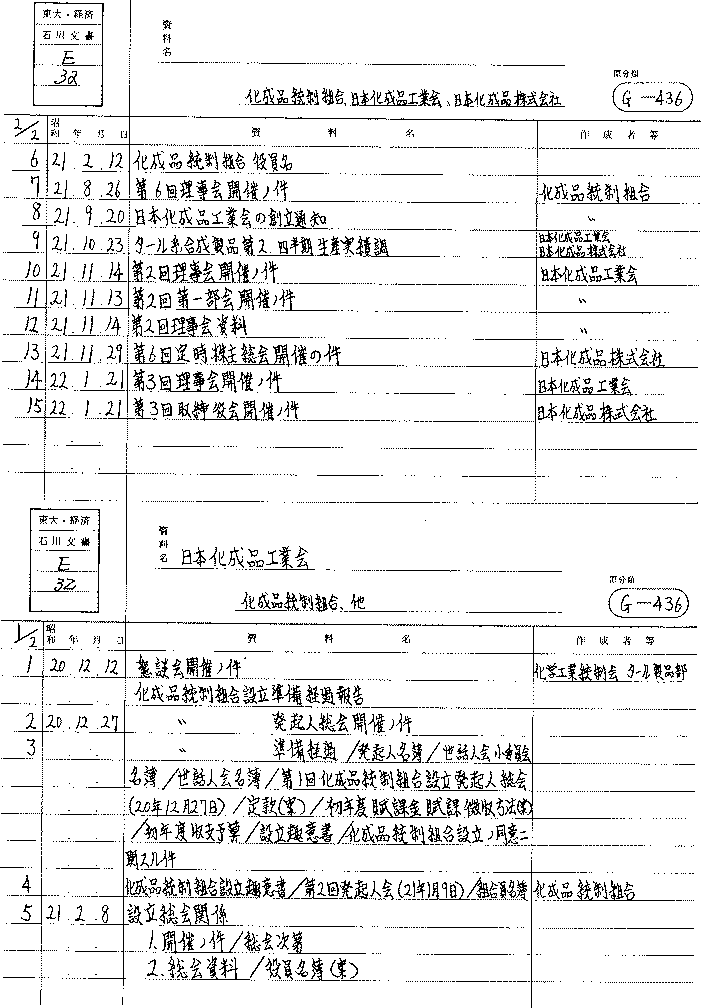 東大・経済
石川文書
E
32
資料名
化成品統制組合、日本化成品工業会、日本化成品株式会社
原分類
G-436
2/2 昭和 年 月 日 資料名 作成者等
6 21. 2. 12 化成品統制組合役員名
7 21. 8. 26 第6回理事会開催ノ件 化成品統制組合
8 21. 9. 20 日本化成品工業会の創立通知 〃
9 21. 10. 23 タール系合成製品第2.四半期生産実績調 日本化成品工業会
日本化成品株式会社
10 21. 11. 14 第2回理事会開催ノ件 日本化成品工業会
11 21. 11. 13 第2回第一部会開催ノ件 〃
12 21. 11. 14 第2回理事会資料 〃
13 21. 11. 29 第6回定時株主総会開催の件 日本化成品株式会社
14 22. 1. 21 第3回理事会開催ノ件 日本化成品工業会
15 22. 1. 21 第3回取締役会開催ノ件 日本化成品株式会社
東大・経済
石川文書
E
32
資料名 日本化成品工業会
化成品統制組合、他
原分類
G-436
1/2 昭和 年 月 日 資料名 作成者等
1 20 12. 12 懇談会開催ノ件 化学工業統制会 タール製品部
化成品統制組合設立準備経過報告
2 20. 12. 27 〃 発起人総会開催ノ件
3 〃 準備経過/発起人名簿/世話人会小委員会
名簿/世話人会名簿/第1回化成品統制組合設立発起人総会
(20年12月27日)/定款(案)/初年度賦課金賦課徴収方法(案)
/初年度収支予算/設立趣意書/化成品統制組合設立ノ同意ニ
関スル件
4 化成品統制組合設立趣意書/第2回発起人会(21年1月9日)/組合員名簿 化成品統制組合
5 21. 2. 8 設立総会関係
1. 開催ノ件/総会次第
2. 総会資料/役員名簿(案)